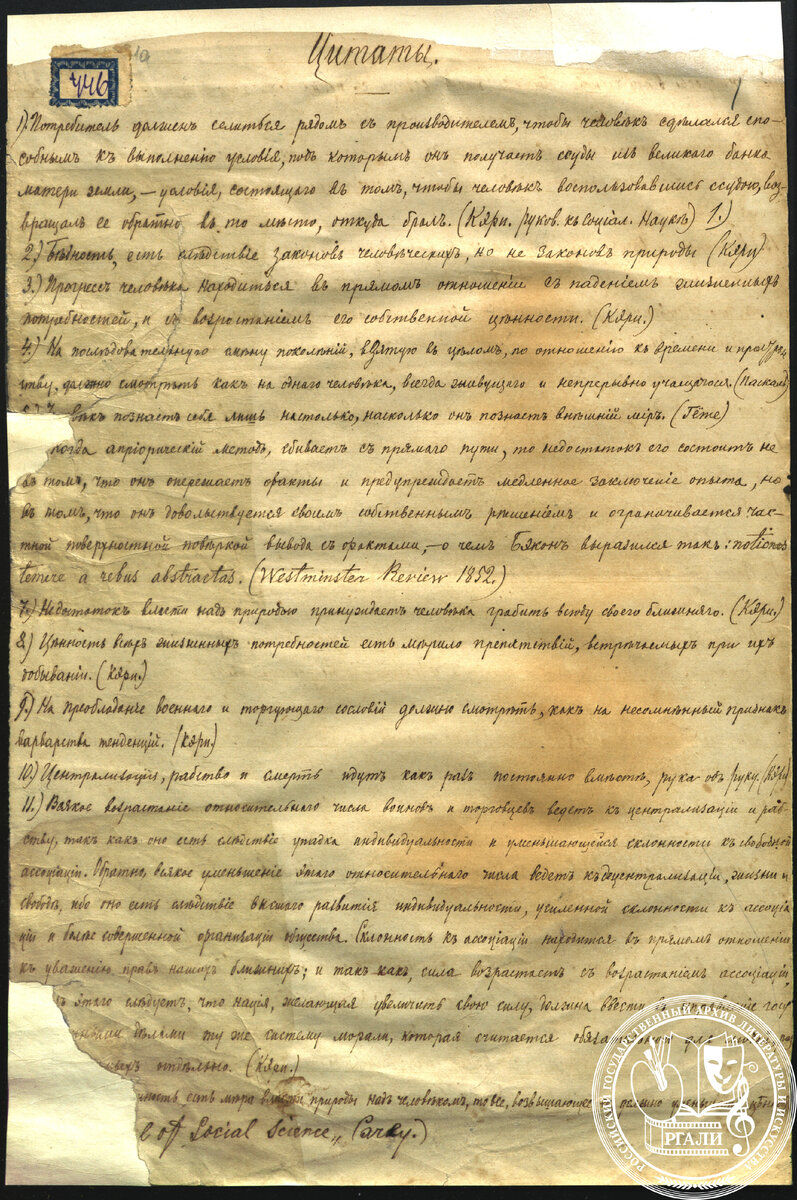 Цитаты.
446
1
1) Потребитель долженъ селиться рядомъ съ производителемъ, чтобы человѣкъ сдѣлался спо-
собнымъ къ выполненію условія, подъ которымъ онъ получаетъ ссуды изъ великаго банка
матери земли, — условія, состоящаго въ томъ, чтобы человѣкъ воспользовавшись ссудою, воз-
вращалъ ее обратно въ то мѣсто, откуда бралъ. (Кэри. Руков. къ Соціал. Наукѣ) 1.)
2.) Бѣдность есть слѣдствіе законовъ человѣческихъ, но не законовъ природы (Кэри)
3.) Прогрессъ человѣка находиться въ прямомъ отношеніи съ паденіемъ жизненныхъ
потребностей, и съ возростаніемъ его собственной цѣнности. (Кэри.)
4.) На послѣдовательную смѣну поколѣній, взятую въ цѣломъ, по отношенію къ времени и простран-
ству, должно смотрѣть какъ на однаго человѣка, всегда живущаго и непрерывно учащагося. (Паскаль)
познаетъ себя лишь настолько, насколько онъ познаетъ внѣшній міръ. (Гёте)
когда апріорическій методъ, сбиваетъ съ прямаго пути, то недостатокъ его состоитъ не
въ томъ, что онъ опережаетъ факты и предупреждаетъ медленное заключеніе опыта, но
въ томъ, что онъ довольствуется своимъ собственнымъ рѣшеніемъ и ограничивается час-
тной поверхностной повѣркой вывода съ фактами, — о чемъ Бэконъ выразился такъ: notiones
temere a rebus abstractas. (Westminster Review 1852.)
7.) Недостатокъ власти надъ природою принуждаетъ человѣка грабить всюду своего ближняго. (Кэри.)
8) Цѣнность всѣхъ жизненныхъ потребностей есть мѣрило препятствій, встрѣчаемыхъ при ихъ
добываніи. (Кэри.)
9.) На преобладанье военнаго и торгующаго сословій должно смотрѣть, какъ на несомнѣнный признакъ
варварства тенденцій. (Кэри.)
10.) Централизація, рабство и смерть идутъ какъ разъ постоянно вмѣстѣ, рука объ руку. (Кэри)
11.) Всякое возрастаніе относительнаго числа воиновъ и торговцевъ ведетъ къ централизаціи и раб-
ству, такъ какъ оно есть слѣдствіе упадка индивидуальности и уменьшающейся склонности къ свободной
ассоціаціи. Обратно, всякое уменьшеніе этаго относительнаго числа ведетъ къ децентрализаціи, жизни и
свободѣ, ибо оно есть слѣдствіе высшаго развитія индивидуальности, усиленной склонности къ ассоціа-
ціи и болѣе совершенной организаціи общества. Склонность къ ассоціаціи находится въ прямомъ отношеніи
къ уваженію правъ нашихъ ближнихъ; и такъ какъ сила возрастаетъ съ возрастаніемъ ассоціаціи,
этаго слѣдуетъ, что нація, желающая увеличить свою силу, должна ввести въ
дѣлами ту же систему морали, которая считается
отдѣльно. (Кэри.)
есть мѣра власти природы надъ человѣкомъ, то все, возвышающее
of Social Science,, Carey.)
РОССИЙСКИЙ ГОСУДАРСТВЕННЫЙ АРХИВ ЛИТЕРАТУРЫ И ИСКУССТВА
РГАЛИ